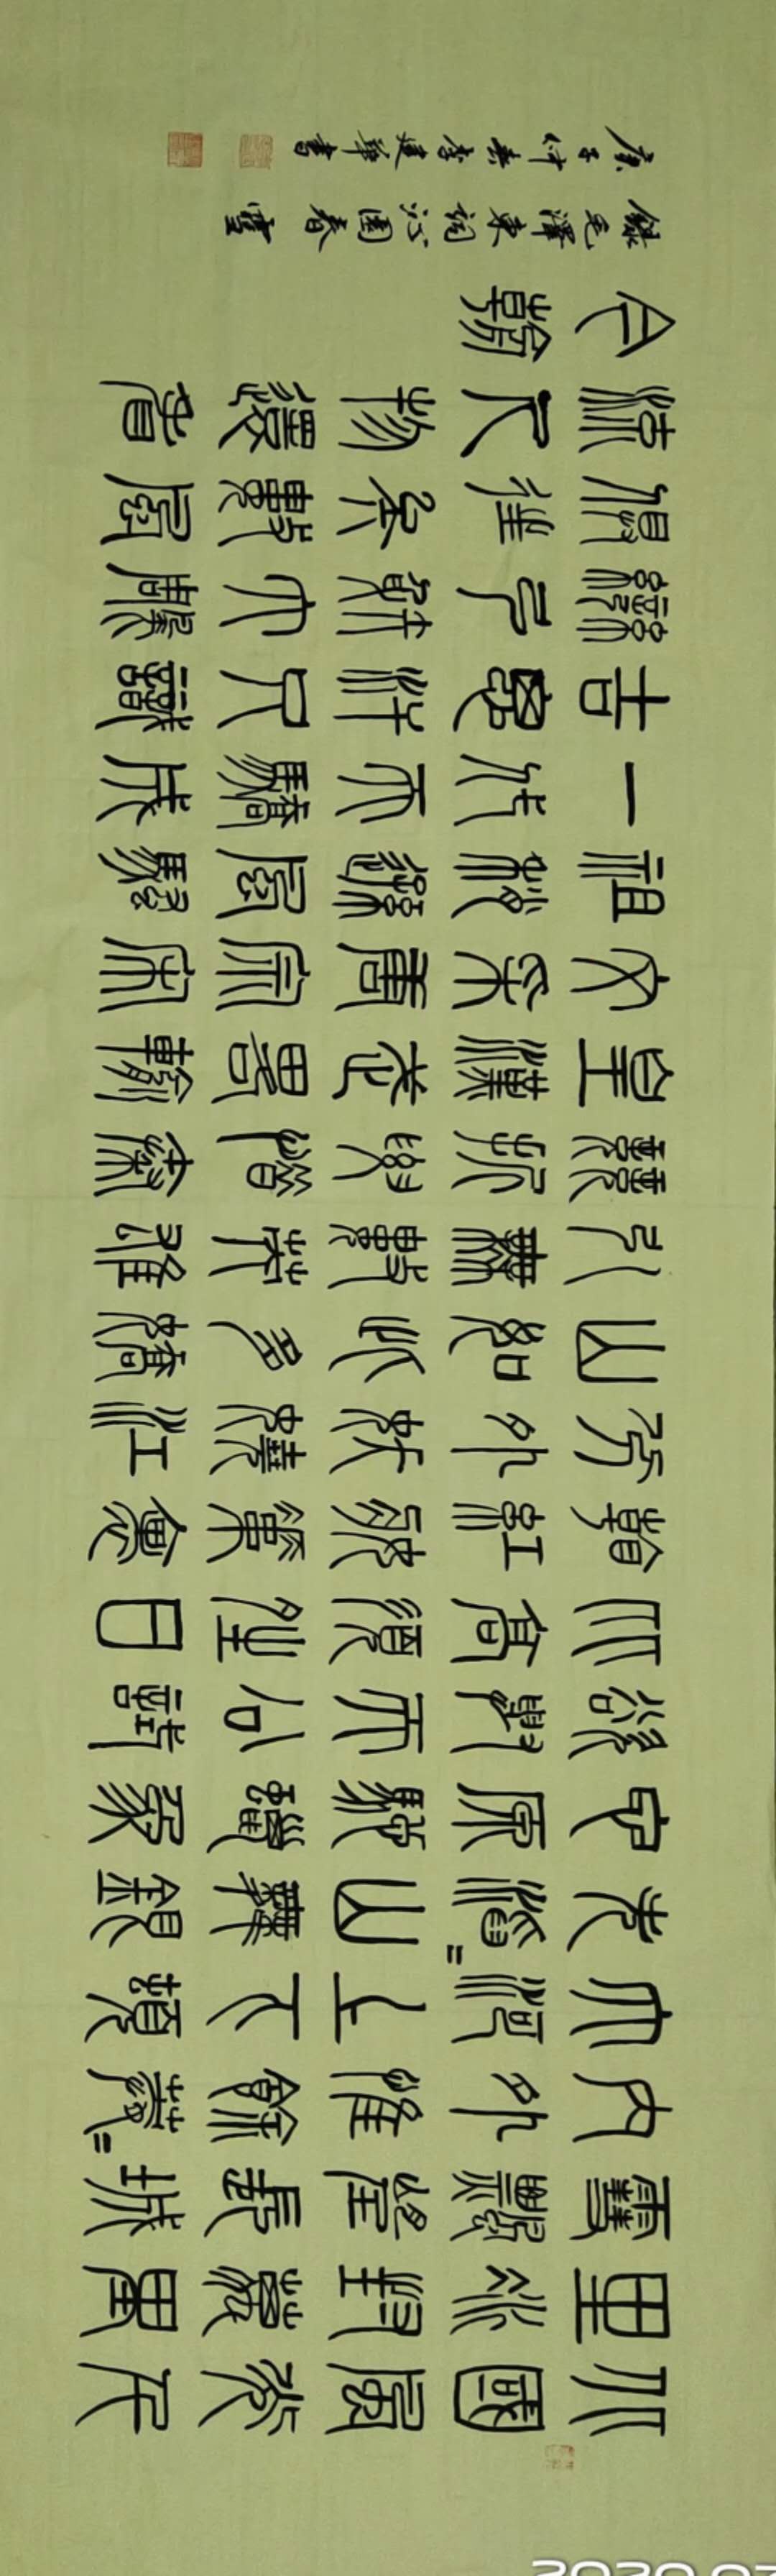 北國風光千
里冰封萬里
雪飄望長城
內外惟餘莽=
大河上下頓
失滔=山舞銀
蛇原馳蠟象
欲與天公試
比高須晴日
看紅裝素裹
分外妖嬈江
山如此多嬌
引無數英雄
競折腰惜秦
皇漢武略輸
文采唐宗宋
祖稍遜風騷
一代天驕成
吉思汗只識
彎弓射大雕
俱往矣數風
流人物還看
今朝
錄毛澤東詞沁園春雪
庚子仲春李建華書